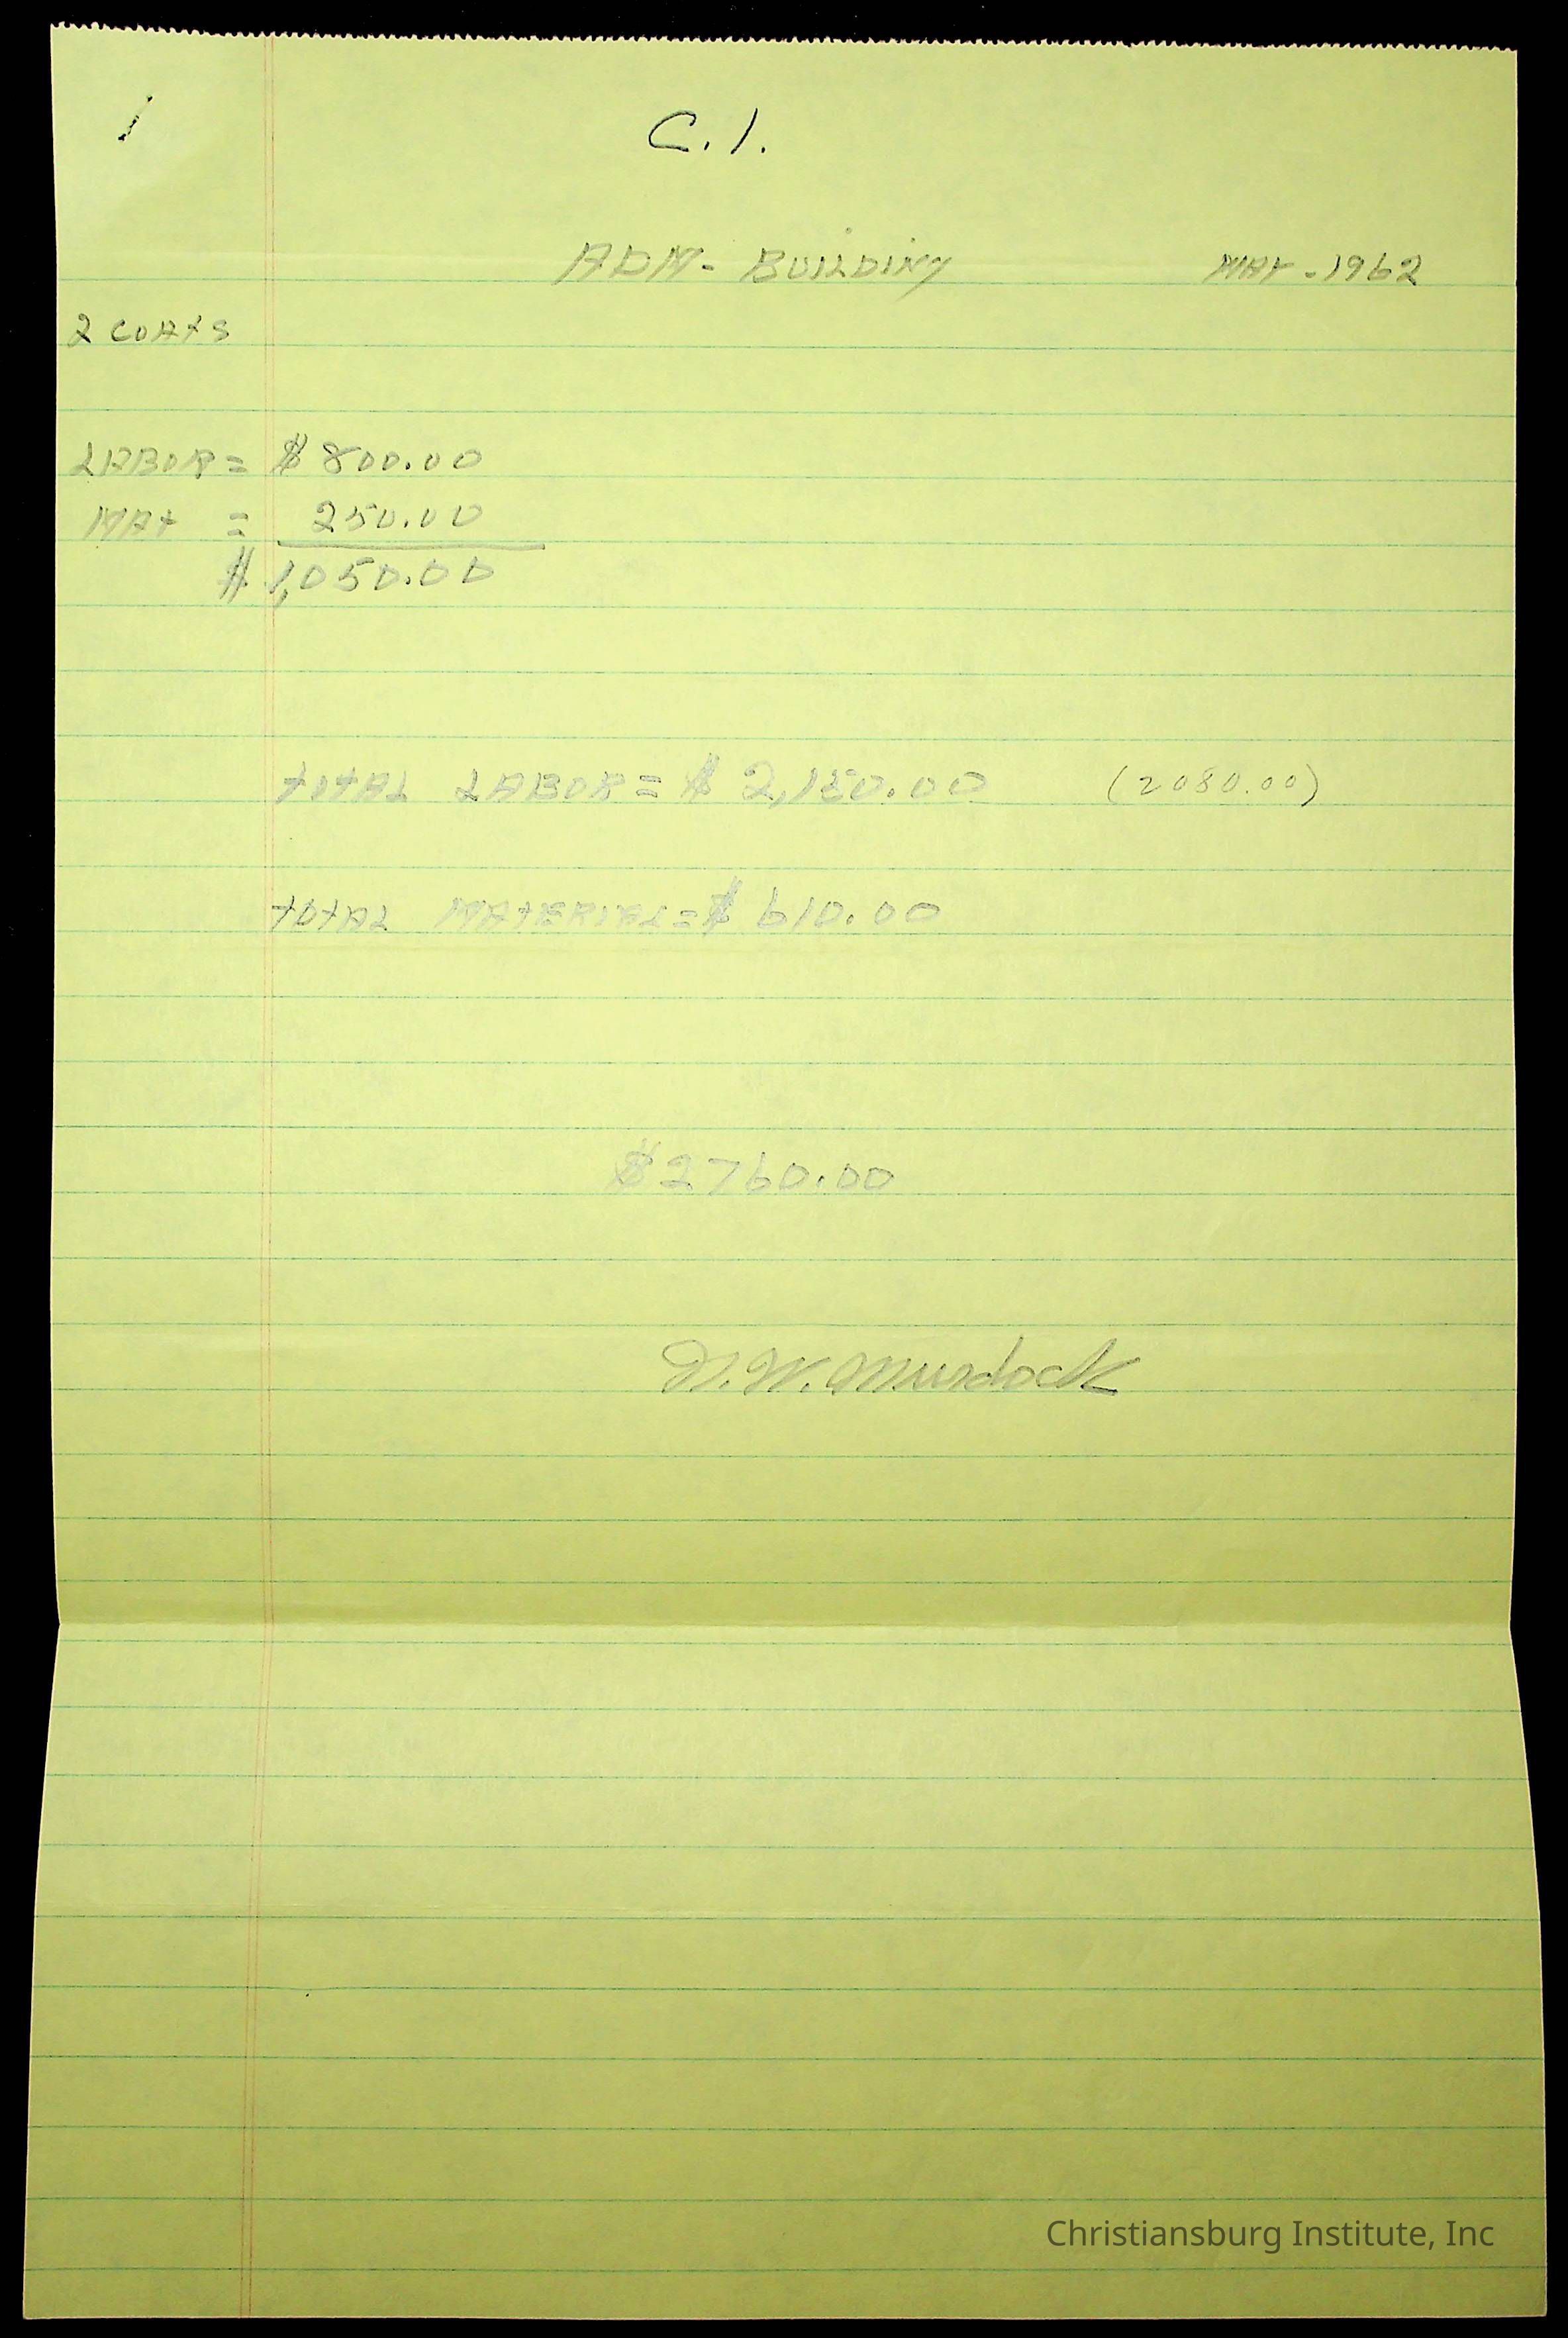 1
C.I.
ADM- BUILDINg MAY-1962
2 COAtS
LABOR = $ 800.00
MAt = 250.00
$ 1,050.00
tOtAL LABOR = $ 2,150.00 (2080.00)
tOtAL MAtERIAL = $ 610.00
$2760.00
W. Murdock
Christiansburg Institute, Inc